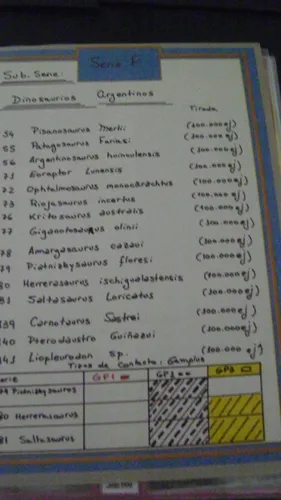 Serie F
Sub. Serie:
Dinosaurios Argentinos
Tirada
54 Pisanosaurus Mertii (200.000 ej)
55 Patagosaurus Fariasi (200.000 ej)
56 Argentinosaurus huinculensis (200.000 ej)
71 Eoraptor Lunensis (200.000 ej)
72 Ophtalmosaurus monocharactus (200.000 ej)
73 Riojasaurus incertus (200.000 ej)
76 Kritosaurus australis (200.000 ej)
77 Gigantosaurus olinii (200.000 ej)
78 Amargasaurus cazaui (200.000 ej)
79 Piatnizkysaurus floresi (200.000 ej)
80 Herrerasaurus ischigualastensis (200.000 ej)
81 Saltasaurus Loricatus (200.000 ej)
139 Carnotaurus Sastrei (200.000 ej)
140 Pterodaustro Guiñazui (200.000 ej)
143 Liopleurodon Sp. (200.000 ej)
Tipos de Contacto: Gemplus
Serie GP1 GP2 GP3
79 Piatnizkysauros
80 Herrerasauros
81 Saltasauros